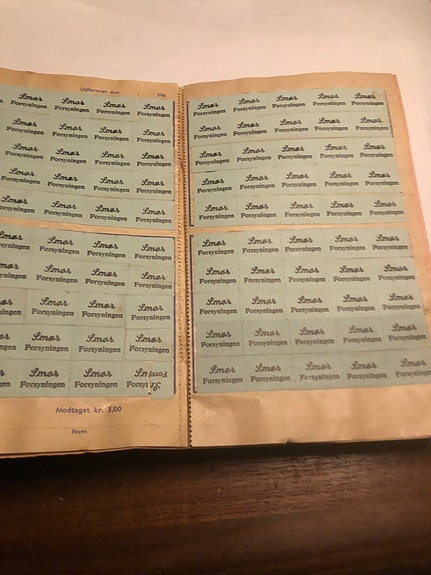 Udleveret den 196
Smør Smør Smør Smør
Forsyningen Forsyningen Forsyningen Forsyningen
Smør Smør Smør Smør
Forsyningen Forsyningen Forsyningen Forsyningen
Smør Smør Smør Smør
Forsyningen Forsyningen Forsyningen Forsyningen
Smør Smør Smør Smør
Forsyningen Forsyningen Forsyningen Forsyningen
Smør Smør Smør Smør
Forsyningen Forsyningen Forsyningen Forsyningen
Smør Smør Smør
Forsyningen Forsyningen Forsyningen
Smør Smør Smør
Forsyningen Forsyningen Forsyningen
Smør Smør Smør
Forsyningen Forsyningen Forsyningen
Smør Smør Smør
Forsyningen Forsyningen Forsyningen
Smør Smør Smør
Forsyningen Forsyningen
Modtaget kr. 3,00
Navn
Smør Smør Smør Smør Smør
Forsyningen Forsyningen Forsyningen Forsyningen Forsyningen
Smør Smør Smør Smør Smør
Forsyningen Forsyningen Forsyningen Forsyningen Forsyningen
Smør Smør Smør Smør Smør
Forsyningen Forsyningen Forsyningen Forsyningen Forsyningen
Smør Smør Smør Smør Smør
Forsyningen Forsyningen Forsyningen Forsyningen Forsyningen
Smør Smør Smør Smør Smør
Forsyningen Forsyningen Forsyningen Forsyningen Forsyningen
Smør Smør Smør Smør Smør
Forsyningen Forsyningen Forsyningen Forsyningen Forsyningen
Smør Smør Smør Smør Smør
Forsyningen Forsyningen Forsyningen Forsyningen Forsyningen
Smør Smør Smør Smør Smør
Forsyningen Forsyningen Forsyningen Forsyningen Forsyningen
Smør Smør Smør Smør Smør
Forsyningen Forsyningen Forsyningen Forsyningen Forsyningen
Smør Smør Smør Smør Smør
Forsyningen Forsyningen Forsyningen Forsyningen Forsyningen